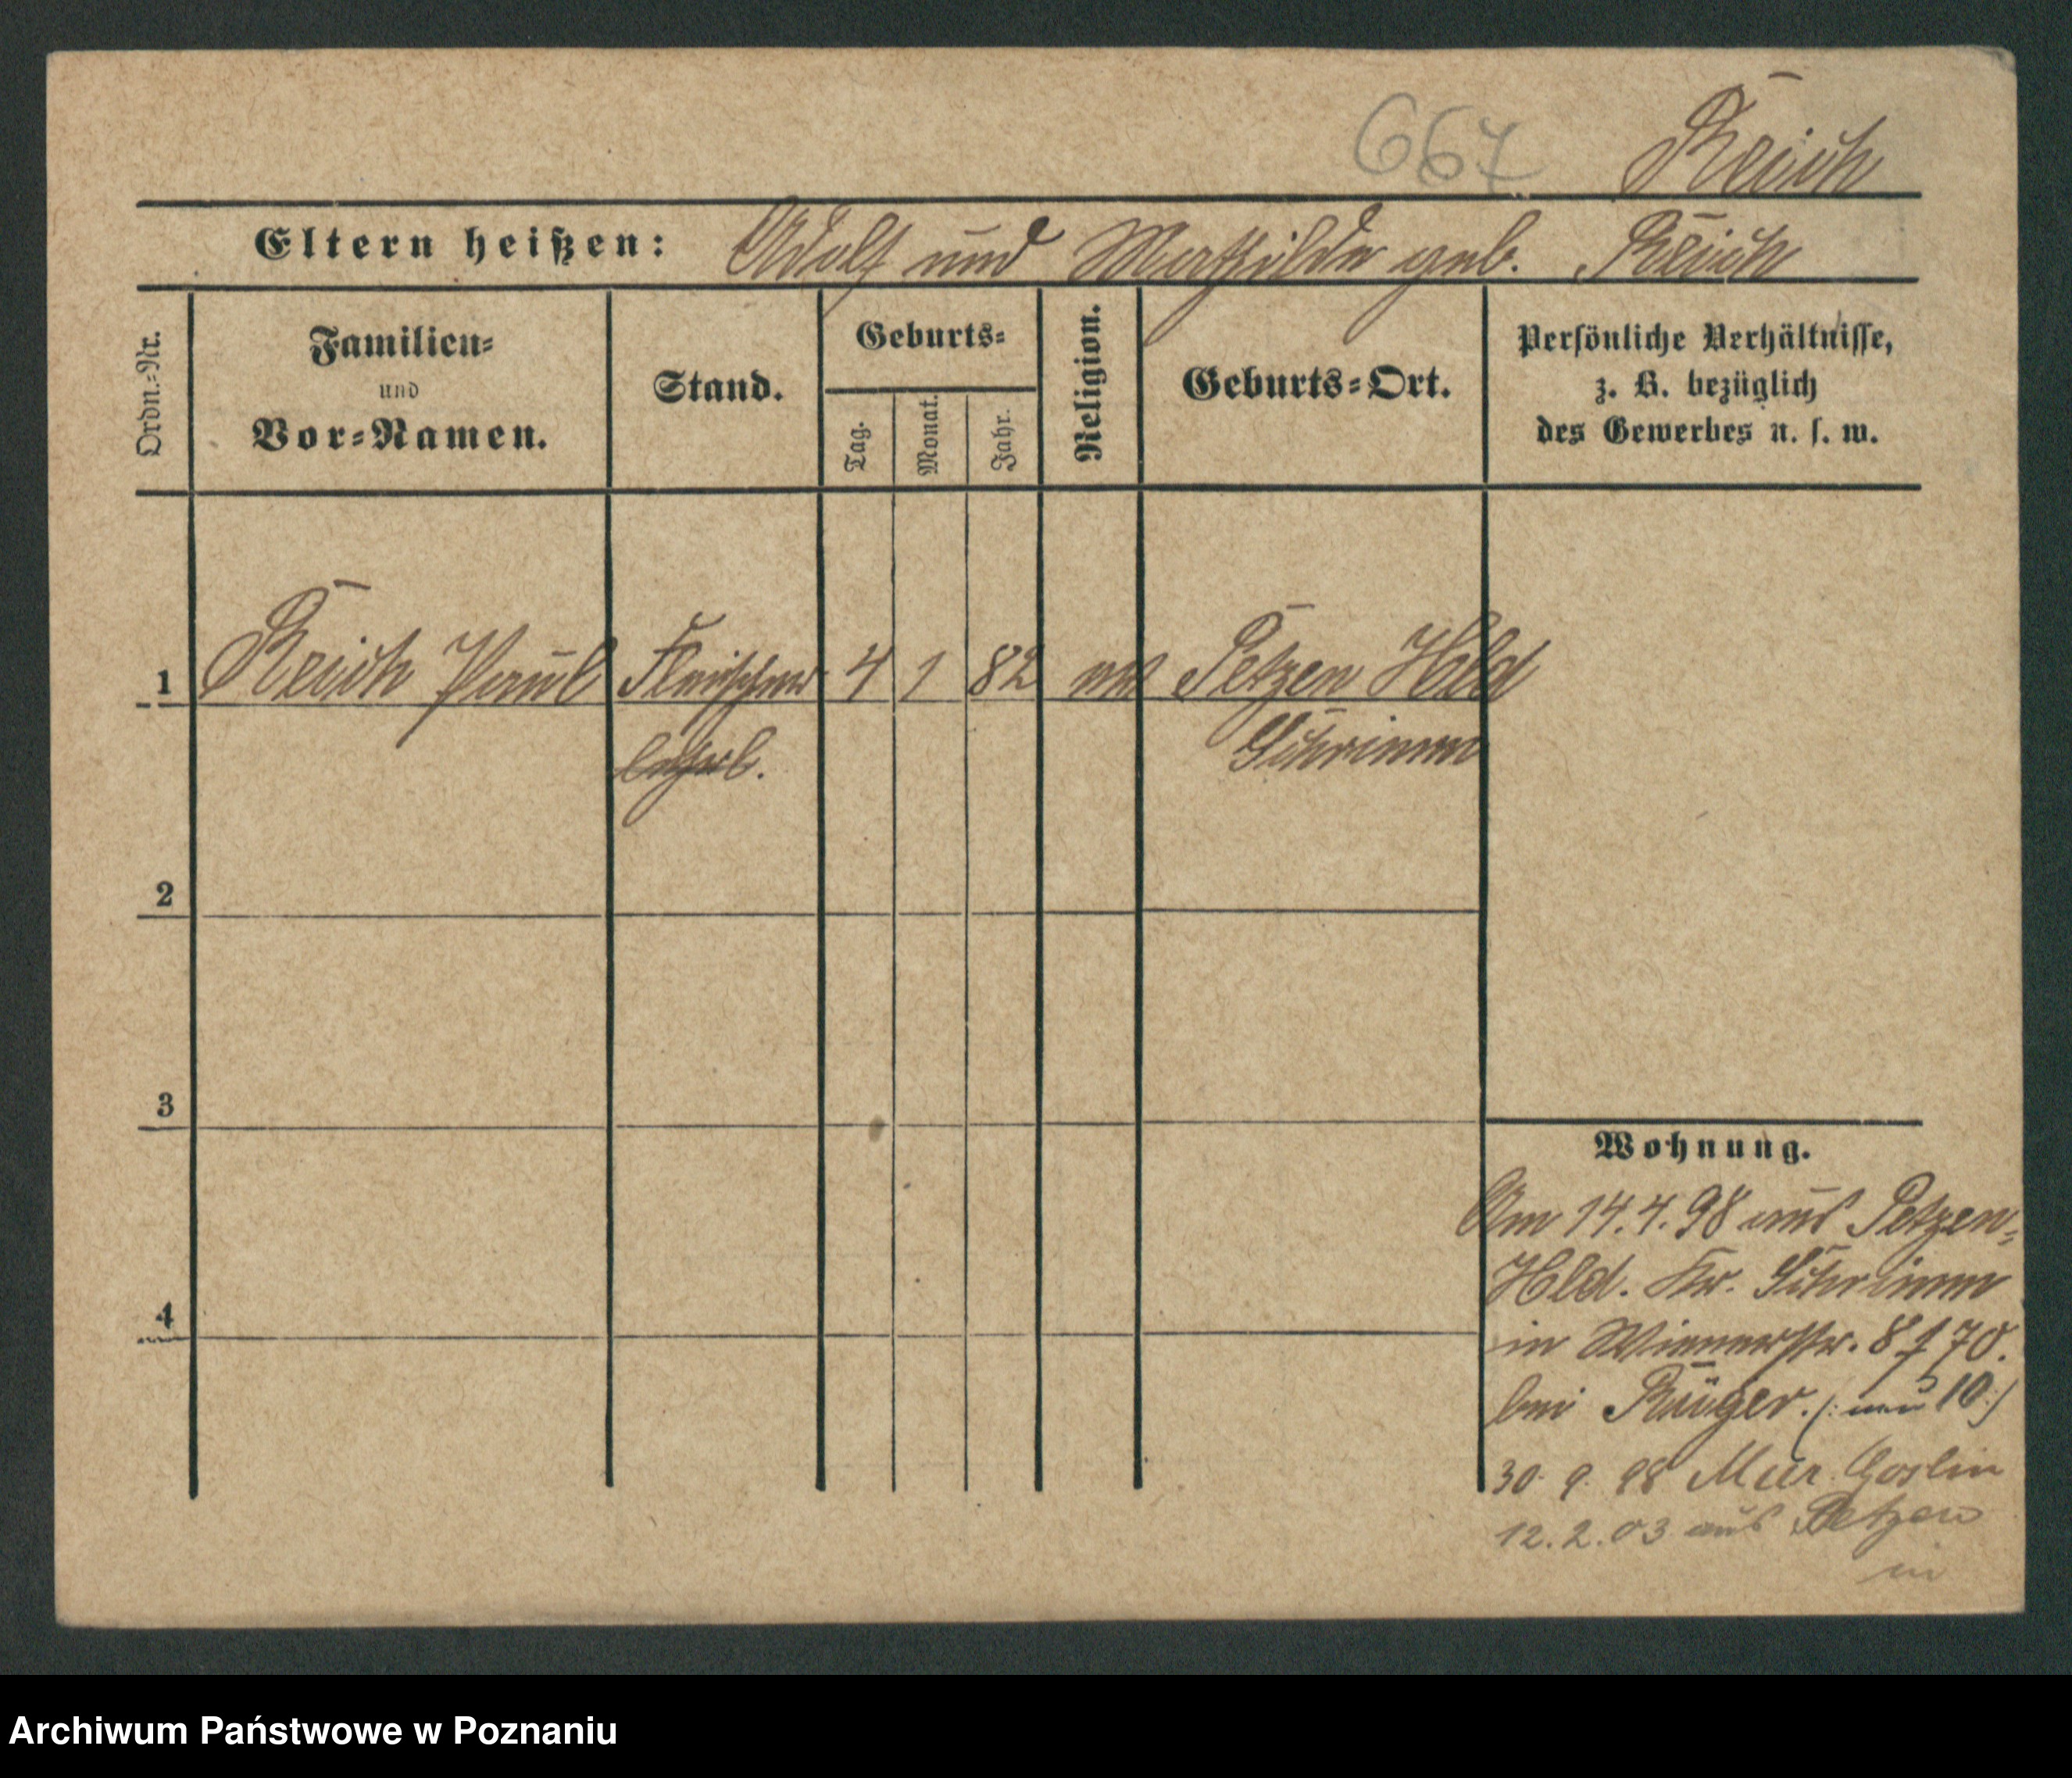 667 Reich
Eltern heißen: Adolf und Mathilde geb. Reich
Ordn.-Nr.
Familien-
und
Vor-Namen.
Stand.
Geburts-
Tag.
Monat.
Jahr.
Religion.
Geburts-Ort.
Persönliche Verhältnisse,
z. B. bezüglich
des Gewerbes u. s. w.
1 Reich Paul Fleischer 4 1 82 Petzen Hld
Schrimm
2
3
4
Wohnung.
Am 14.4.98 aus Petzen-
Hld. Kr. Schrimm
in Wienerstr. 8 f 70.
bei Rüger. (: neu 10 :)
30. 9. 98 Mur. Goslin
12. 2. 03 aus Petzen
in
Archiwum Państwowe w Poznaniu